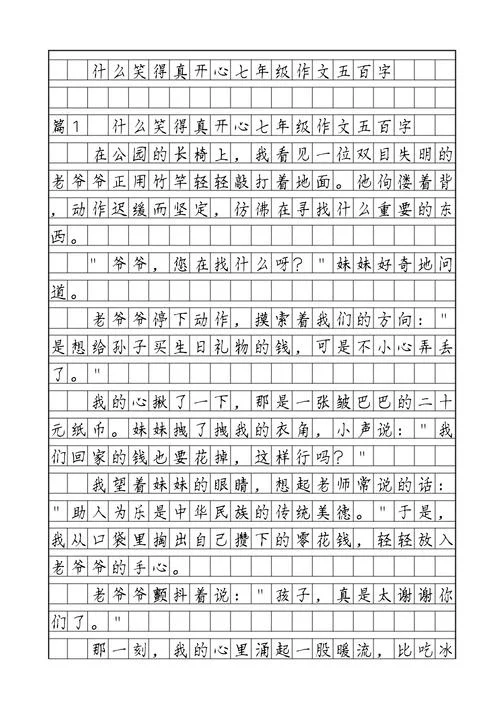 什么笑得真开心七年级作文五百字
篇1 什么笑得真开心七年级作文五百字
在公园的长椅上，我看见一位双目失明的
老爷爷正用竹竿轻轻敲打着地面。他佝偻着背
，动作迟缓而坚定，仿佛在寻找什么重要的东
西。
"爷爷，您在找什么呀？"妹妹好奇地问
道。
老爷爷停下动作，摸索着我们的方向："
是想给孙子买生日礼物的钱，可是不小心弄丢
了。"
我的心揪了一下，那是一张皱巴巴的二十
元纸币。妹妹拽了拽我的衣角，小声说："我
们回家的钱也要花掉，这样行吗？"
我望着妹妹的眼睛，想起老师常说的话：
"助人为乐是中华民族的传统美德。"于是，
我从口袋里掏出自己攒下的零花钱，轻轻放入
老爷爷的手心。
老爷爷颤抖着说："孩子，真是太谢谢你
们了。"
那一刻，我的心里涌起一股暖流，比吃冰